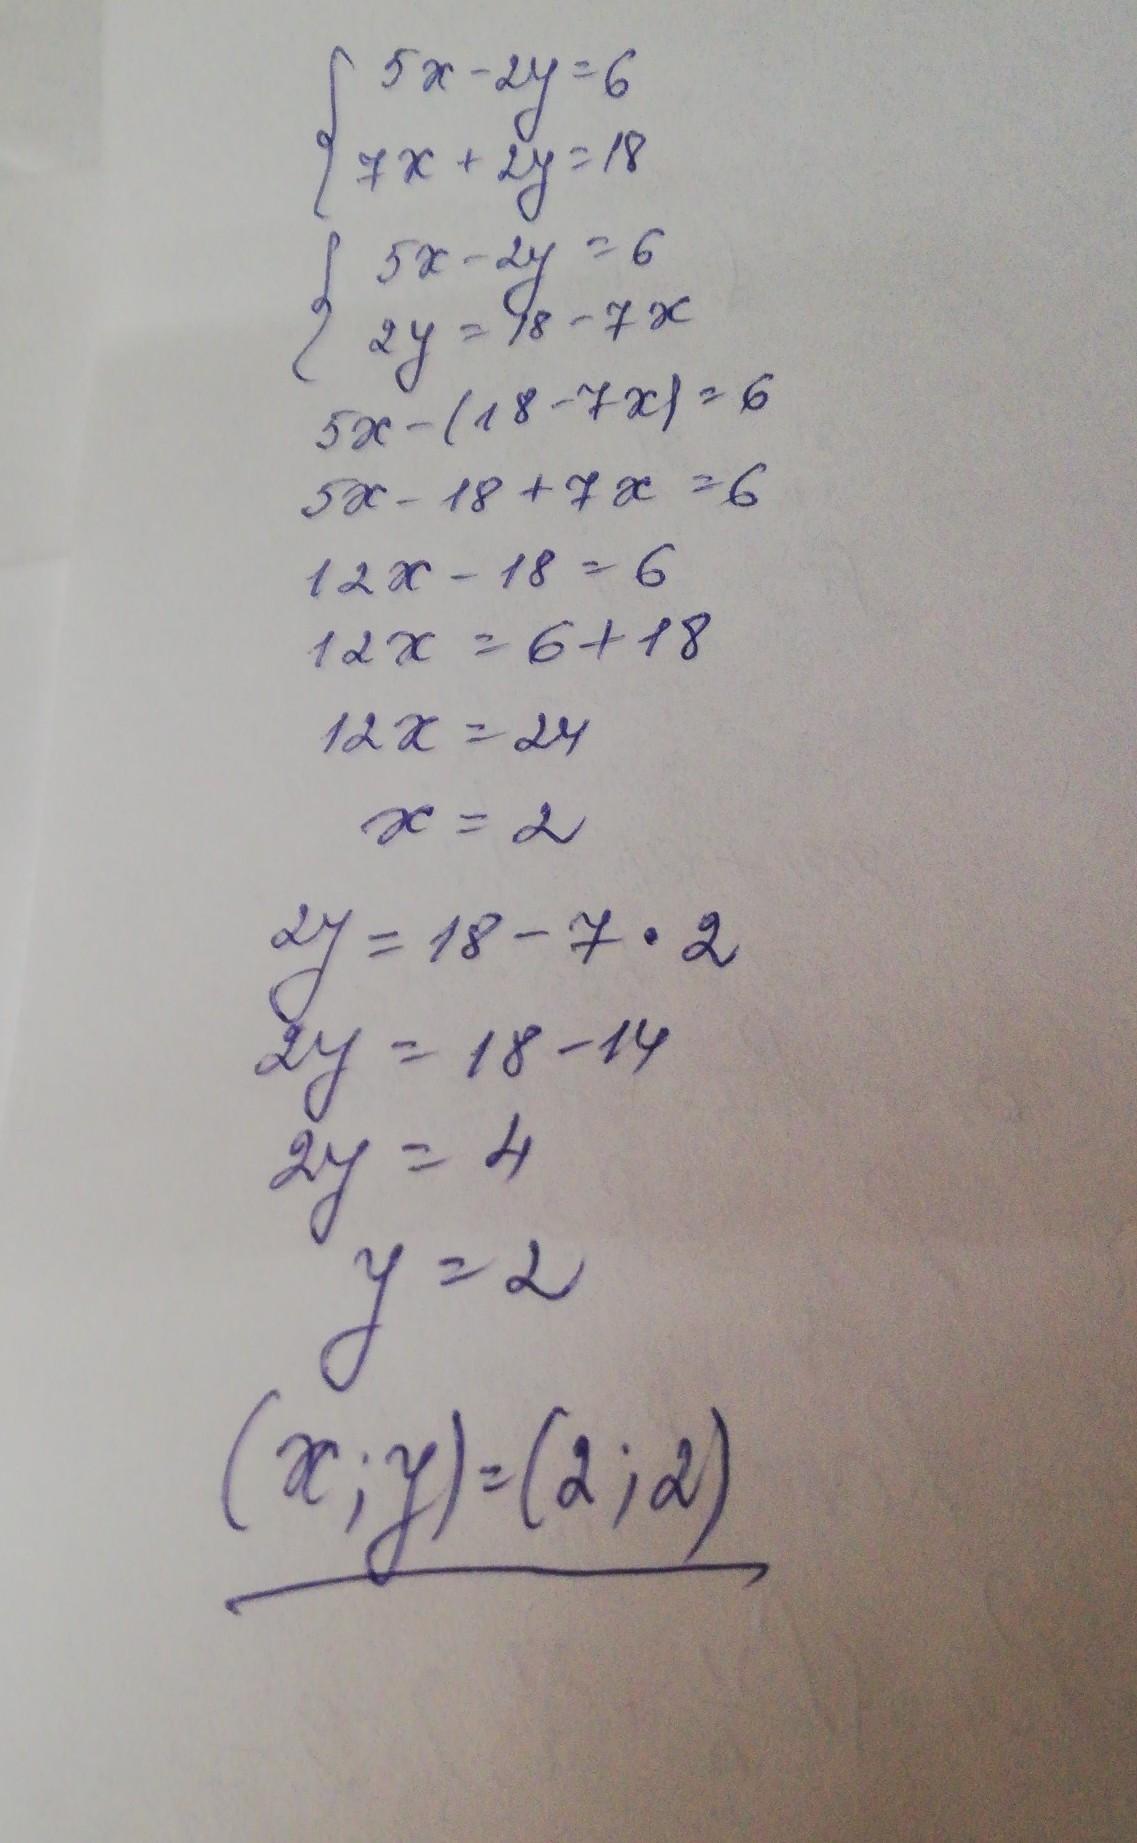 5x-2y=6
7x+2y=18
5x-2y=6
2y=18-7x
5x-(18-7x)=6
5x-18+7x=6
12x-18=6
12x=6+18
12x=24
x=2
2y=18-7·2
2y=18-14
2y=4
y=2
(x;y)=(2;2)